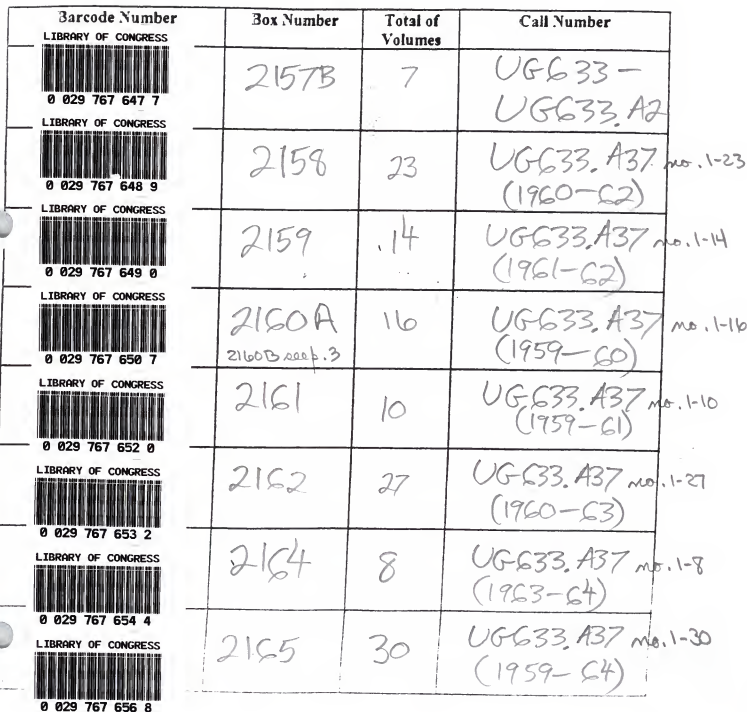 Barcode Number Box Number Total of Volumes Call Number
LIBRARY OF CONGRESS
0 029 767 647 7
2157B 7 UG633 –
UG633.A2
LIBRARY OF CONGRESS
0 029 767 648 9
2158 23 UG633.A37 no. 1-23
(1960–62)
LIBRARY OF CONGRESS
0 029 767 649 0
2159 14 UG633.A37 no. 1-14
(1961–62)
LIBRARY OF CONGRESS
0 029 767 650 7
2160A 16 UG633.A37 no. 1-16
2160B see p. 3 (1959–60)
LIBRARY OF CONGRESS
0 029 767 652 0
2161 10 UG633.A37 no. 1-10
(1959–61)
LIBRARY OF CONGRESS
0 029 767 653 2
2162 27 UG633.A37 no. 1-27
(1960–63)
LIBRARY OF CONGRESS
0 029 767 654 4
2164 8 UG633.A37 no. 1-8
(1963–64)
LIBRARY OF CONGRESS
0 029 767 656 8
2165 30 UG633.A37 no. 1-30
(1959–64)